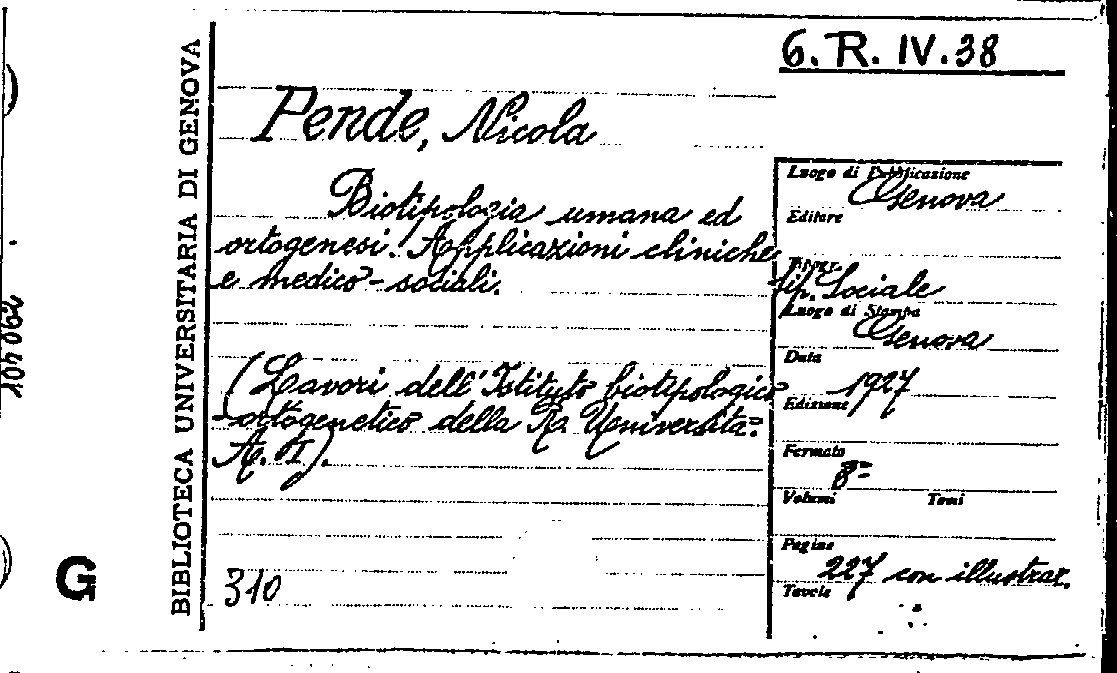 6. R. IV. 38
BIBLIOTECA UNIVERSITARIA DI GENOVA
Pende, Nicola
Biotipologia umana ed
ortogenesi. Applicazioni cliniche
e medico-sociali.
(Lavori dell'Istituto biotipologico
-ortogenetico della R. Università:
A. I).
310
G
Luogo di Pubblicazione
Genova
Editore
Tip. Sociale
Luogo di Stampa
Genova
Data
1927
Edizione
Formato
8°
Volumi Tomi
Pagine
227 con illustraz.
Tavole